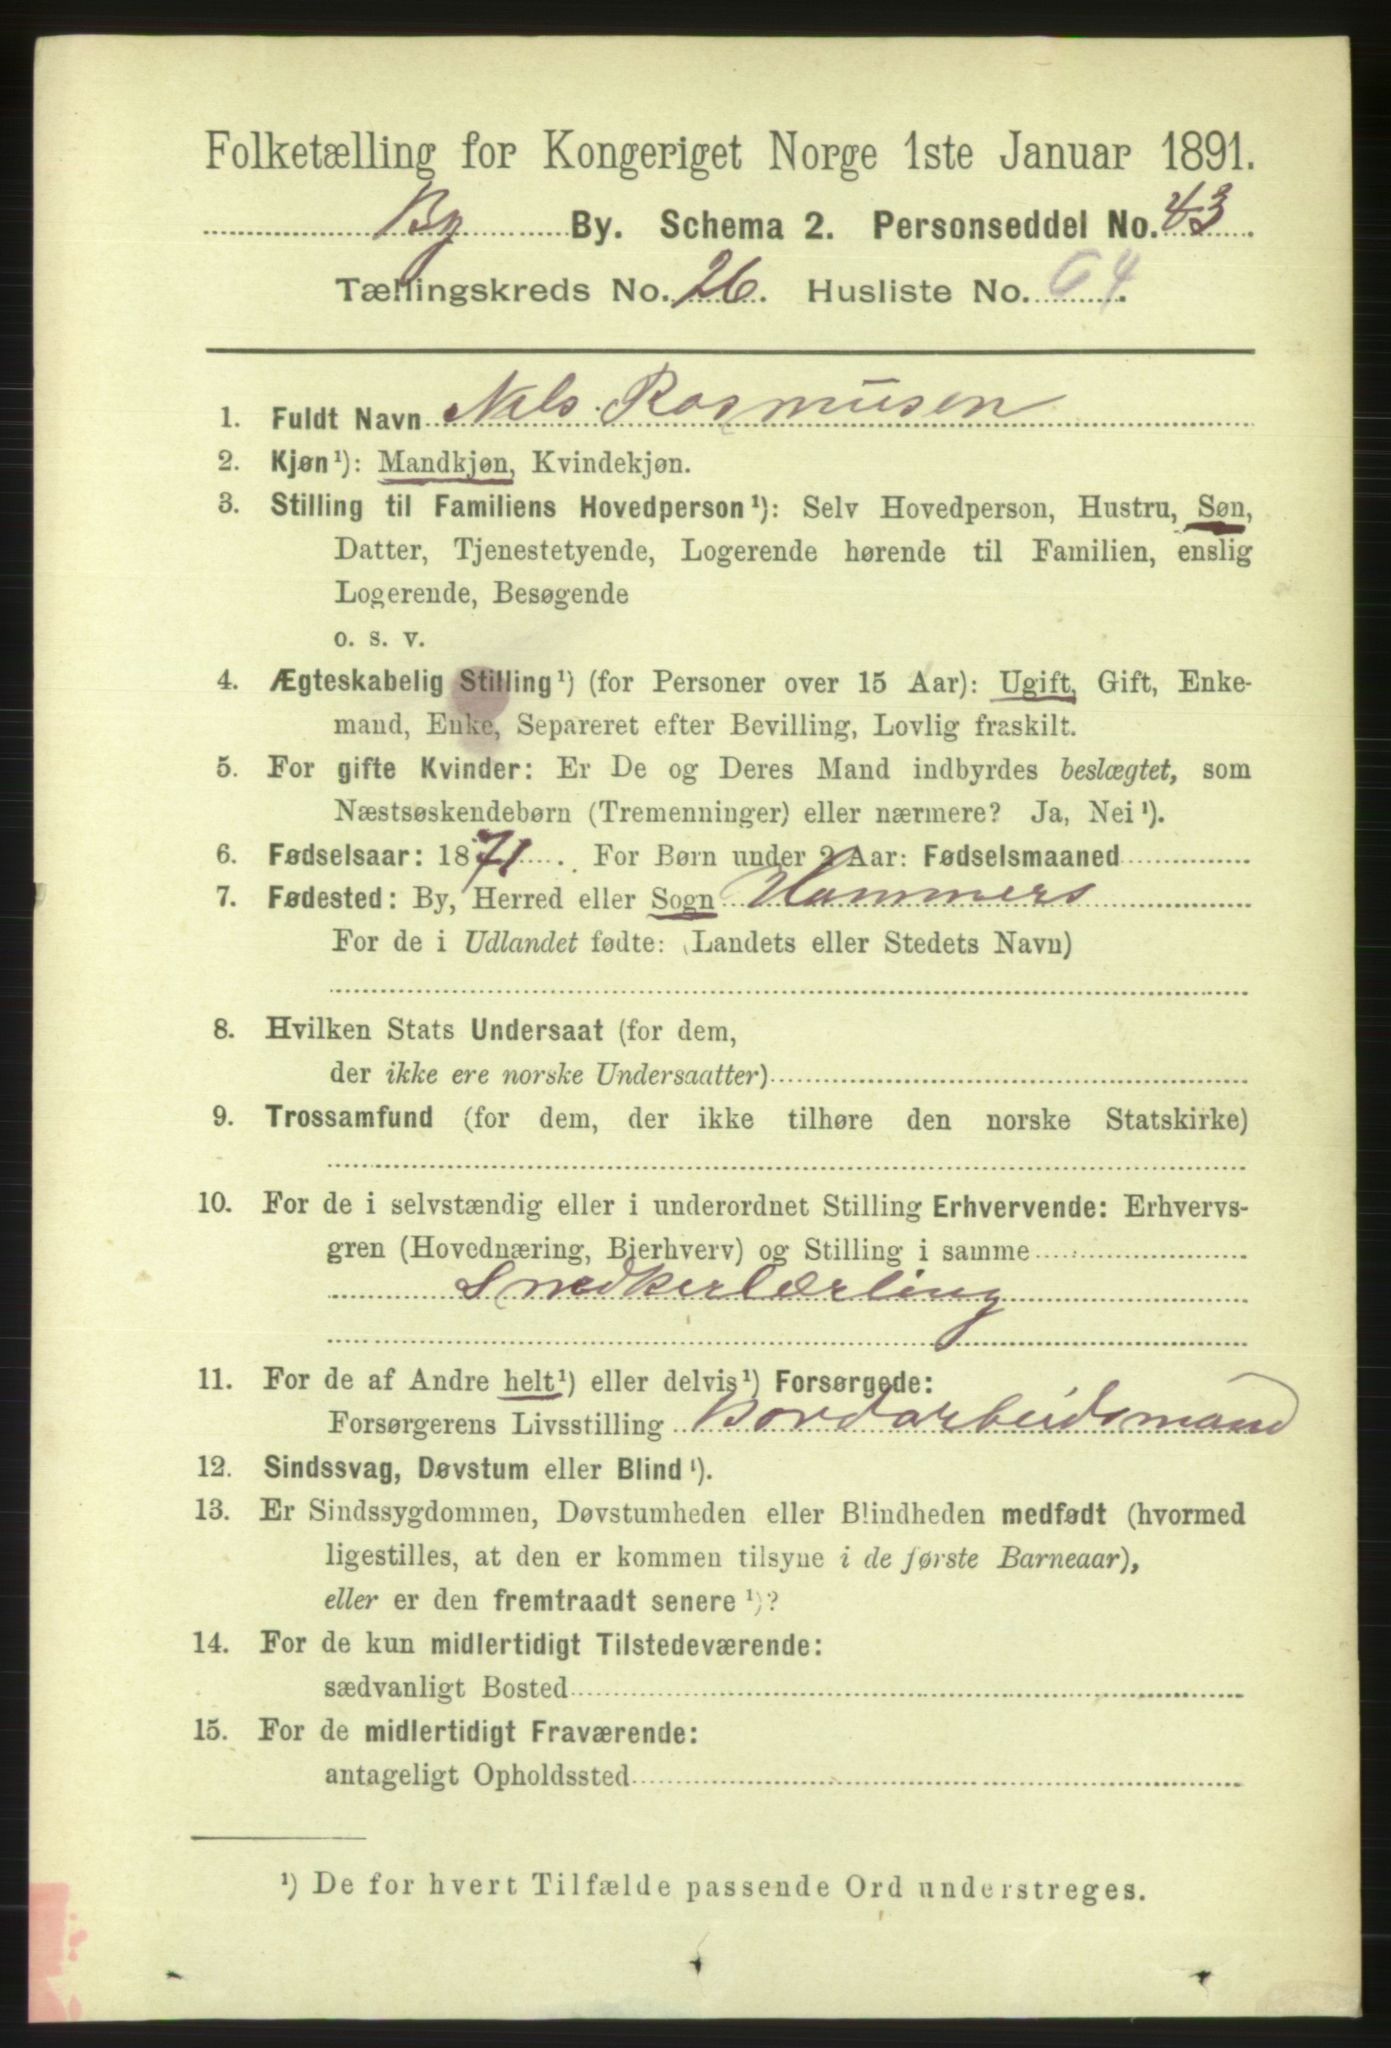 Folketælling for Kongeriget Norge 1ste Januar 1891.
By By. Schema 2. Personseddel No. 43.
Tællingskreds No. 26. Husliste No. 64.
1. Fuldt Navn Nils Rasmusen
2. Kjøn¹): Mandkjøn, Kvindekjøn.
3. Stilling til Familiens Hovedperson¹): Selv Hovedperson, Hustru, Søn,
Datter, Tjenestetyende, Logerende hørende til Familien, enslig
Logerende, Besøgende
o. s. v.
4. Ægteskabelig Stilling¹) (for Personer over 15 Aar): Ugift, Gift, Enke-
mand, Enke, Separeret efter Bevilling, Lovlig fraskilt.
5. For gifte Kvinder: Er De og Deres Mand indbyrdes beslægtet, som
Næstsøskendebørn (Tremenninger) eller nærmere? Ja, Nei¹).
6. Fødselsaar: 1871. For Børn under 2 Aar: Fødselsmaaned
7. Fødested: By, Herred eller Sogn Hammers
For de i Udlandet fødte: (Landets eller Stedets Navn)
8. Hvilken Stats Undersaat (for dem,
der ikke ere norske Undersaatter)
9. Trossamfund (for dem, der ikke tilhøre den norske Statskirke)
10. For de i selvstændig eller i underordnet Stilling Erhvervende: Erhvervs-
gren (Hovednæring, Bierhverv) og Stilling i samme
Snedkerlærling
11. For de af Andre helt¹) eller delvis¹) Forsørgede:
Forsørgerens Livsstilling Bordarbeidsmand
12. Sindssvag, Døvstum eller Blind¹).
13. Er Sindssygdommen, Døvstumheden eller Blindheden medfødt (hvormed
ligestilles, at den er kommen tilsyne i de første Barneaar),
eller er den fremtraadt senere¹)?
14. For de kun midlertidigt Tilstedeværende:
sædvanligt Bosted
15. For de midlertidigt Fraværende:
antageligt Opholdssted
¹) De for hvert Tilfælde passende Ord understreges.